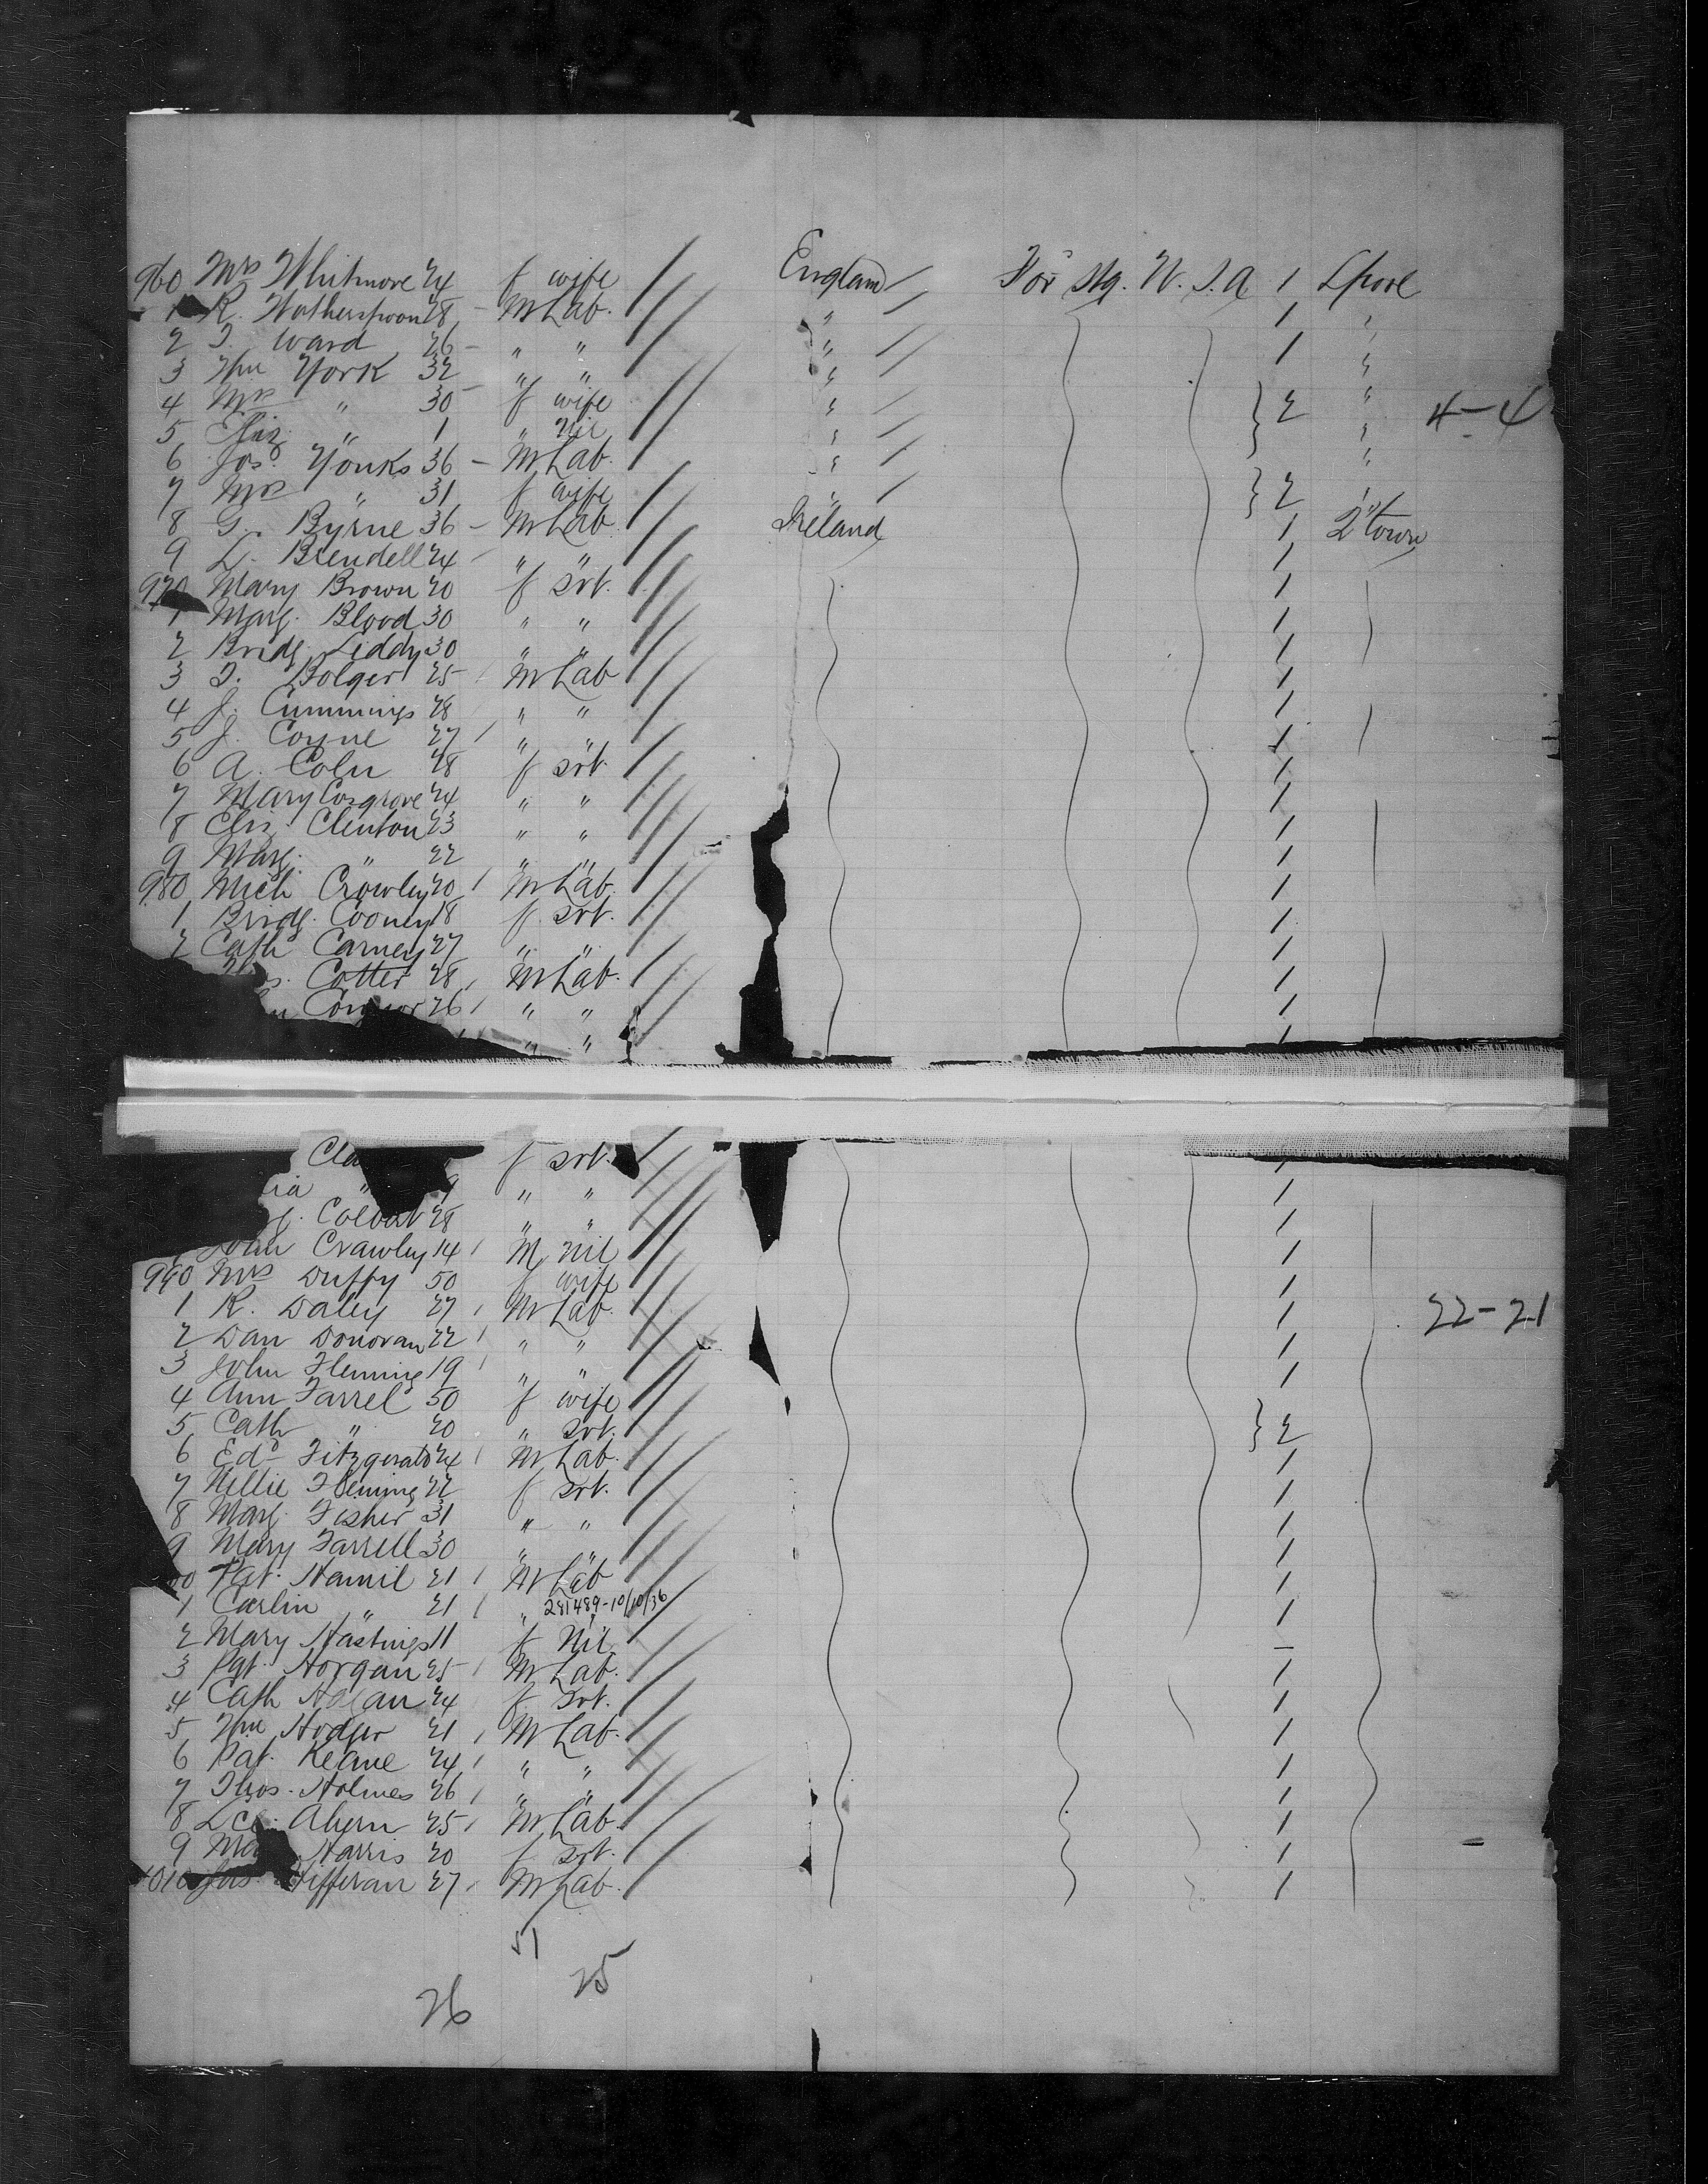 960 Mrs Whitmore 24 f wife England For Stg. U.S.A 1 Lpool
1 R. Wotherspoon 28 - M Lab. " 1 "
2 T. Ward 26 - " " " 1 "
3 Wm York 32 " " " "
4 Mrs " 30 f wife " } 2 " 4-4
5 Eliz " 1 " Nil " "
6 Jos. Yonks 36 - M Lab. " "
7 Mrs " 31 f wife " } 2 "
8 G. Byrne 36 - M Lab Ireland 1 Q'town
9 Brendell 24 - " " 1
970 Mary Brown 20 f Srt. 1
1 Marg. Blood 30 " " 1
2 Bridg. Liddy 30 " " 1
3 T. Bolger 25 M Lab 1
4 J. Cummings 28 " " 1
5 J. Coyne 27 " " 1
6 A. 28 f Srt. 1
7 Mary Cosgrove 24 " " 1
8 Eliz Clenton 23 " " 1
9 Marg. " 22 " " 1
980 Mich Crowley 20 M Lab. 1
1 Bridg. Cooney 18 f Srt. 1
2 Cath Carney 27 " " 1
Cotter 28 M Lab. 1
Connor 26 " " 1
" " 1
Cla f Srt. 1
ia " 9 " " 1
28 " " 1
John Crawley 14 M Nil 1
990 Mrs Duffy 50 f wife 1
1 R. Daley 27 M Lab. 1 22-21
2 Dan Donovan 22 " " 1
3 John Fleming 19 " " 1
4 Ann Farrel 50 f wife
5 Cath " 20 " Srt. } 2
6 Ed Fitzgerald 24 M Lab. 1
7 Nellie Fleming 22 f Srt. 1
8 Marg. Fisher 31 " " 1
9 Mary Farrell 30 " " 1
00 Pat. Hamil 21 M Lab 1
1 Carlin " 21 " 281489-10/10/36 1
2 Mary Hastings 11 f Nil -
3 Pat. Horgan 25 M Lab. 1
4 Cath 24 f Srt. 1
5 Wm Hodger 21 M Lab. 1
6 Pat. Keane 24 " " 1
7 Thos. Holmes 26 " " 1
8 Ahern 25 M Lab. 1
9 Ma Harris 20 f Srt. 1
1010 Jas Hefferan 27 M Lab. 1
51
25
26